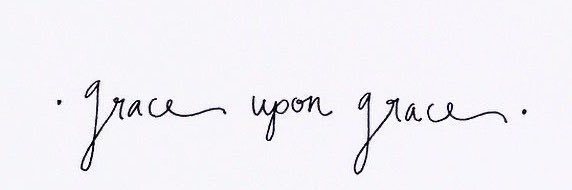 . grace upon grace.